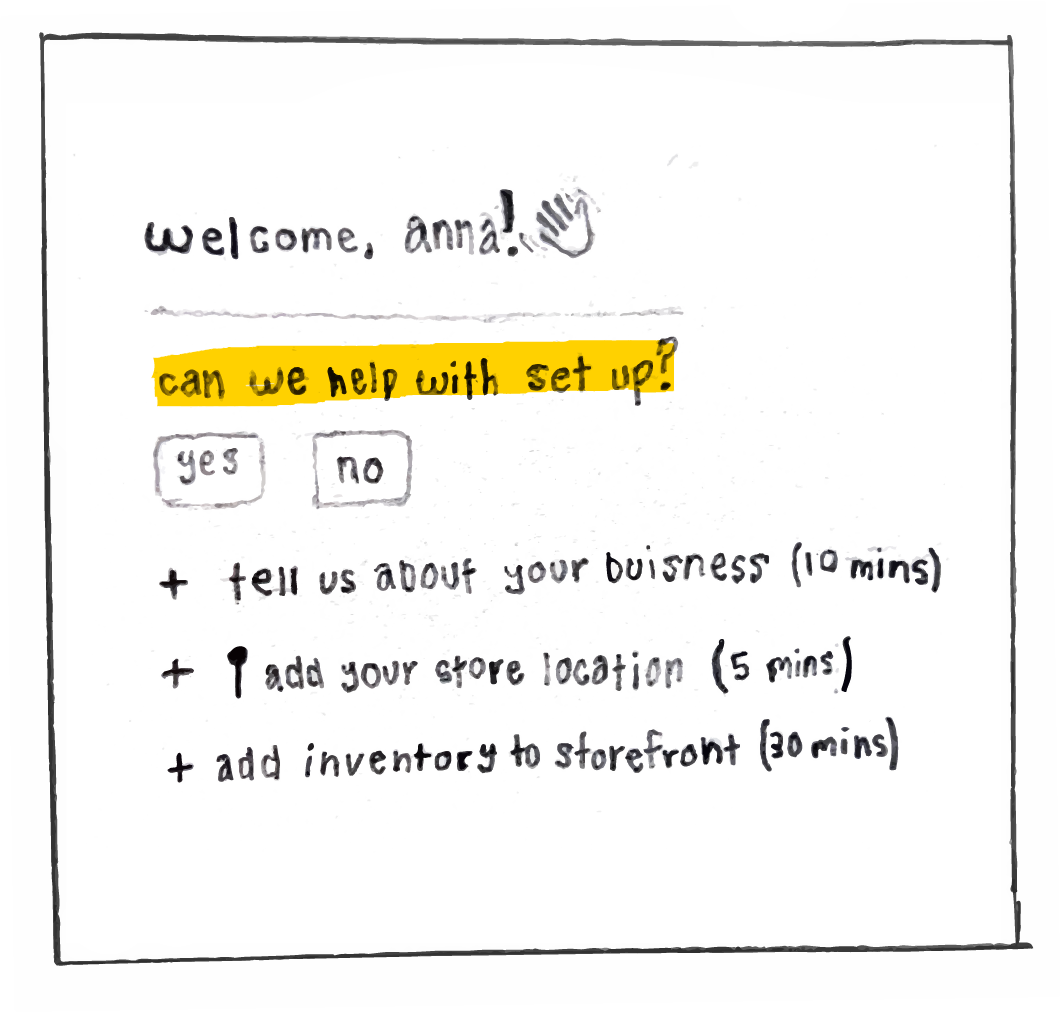 welcome, anna!
can we help with set up?
yes no
+ tell us about your buisness (10 mins)
+ add your store location (5 mins)
+ add inventory to storefront (30 mins)